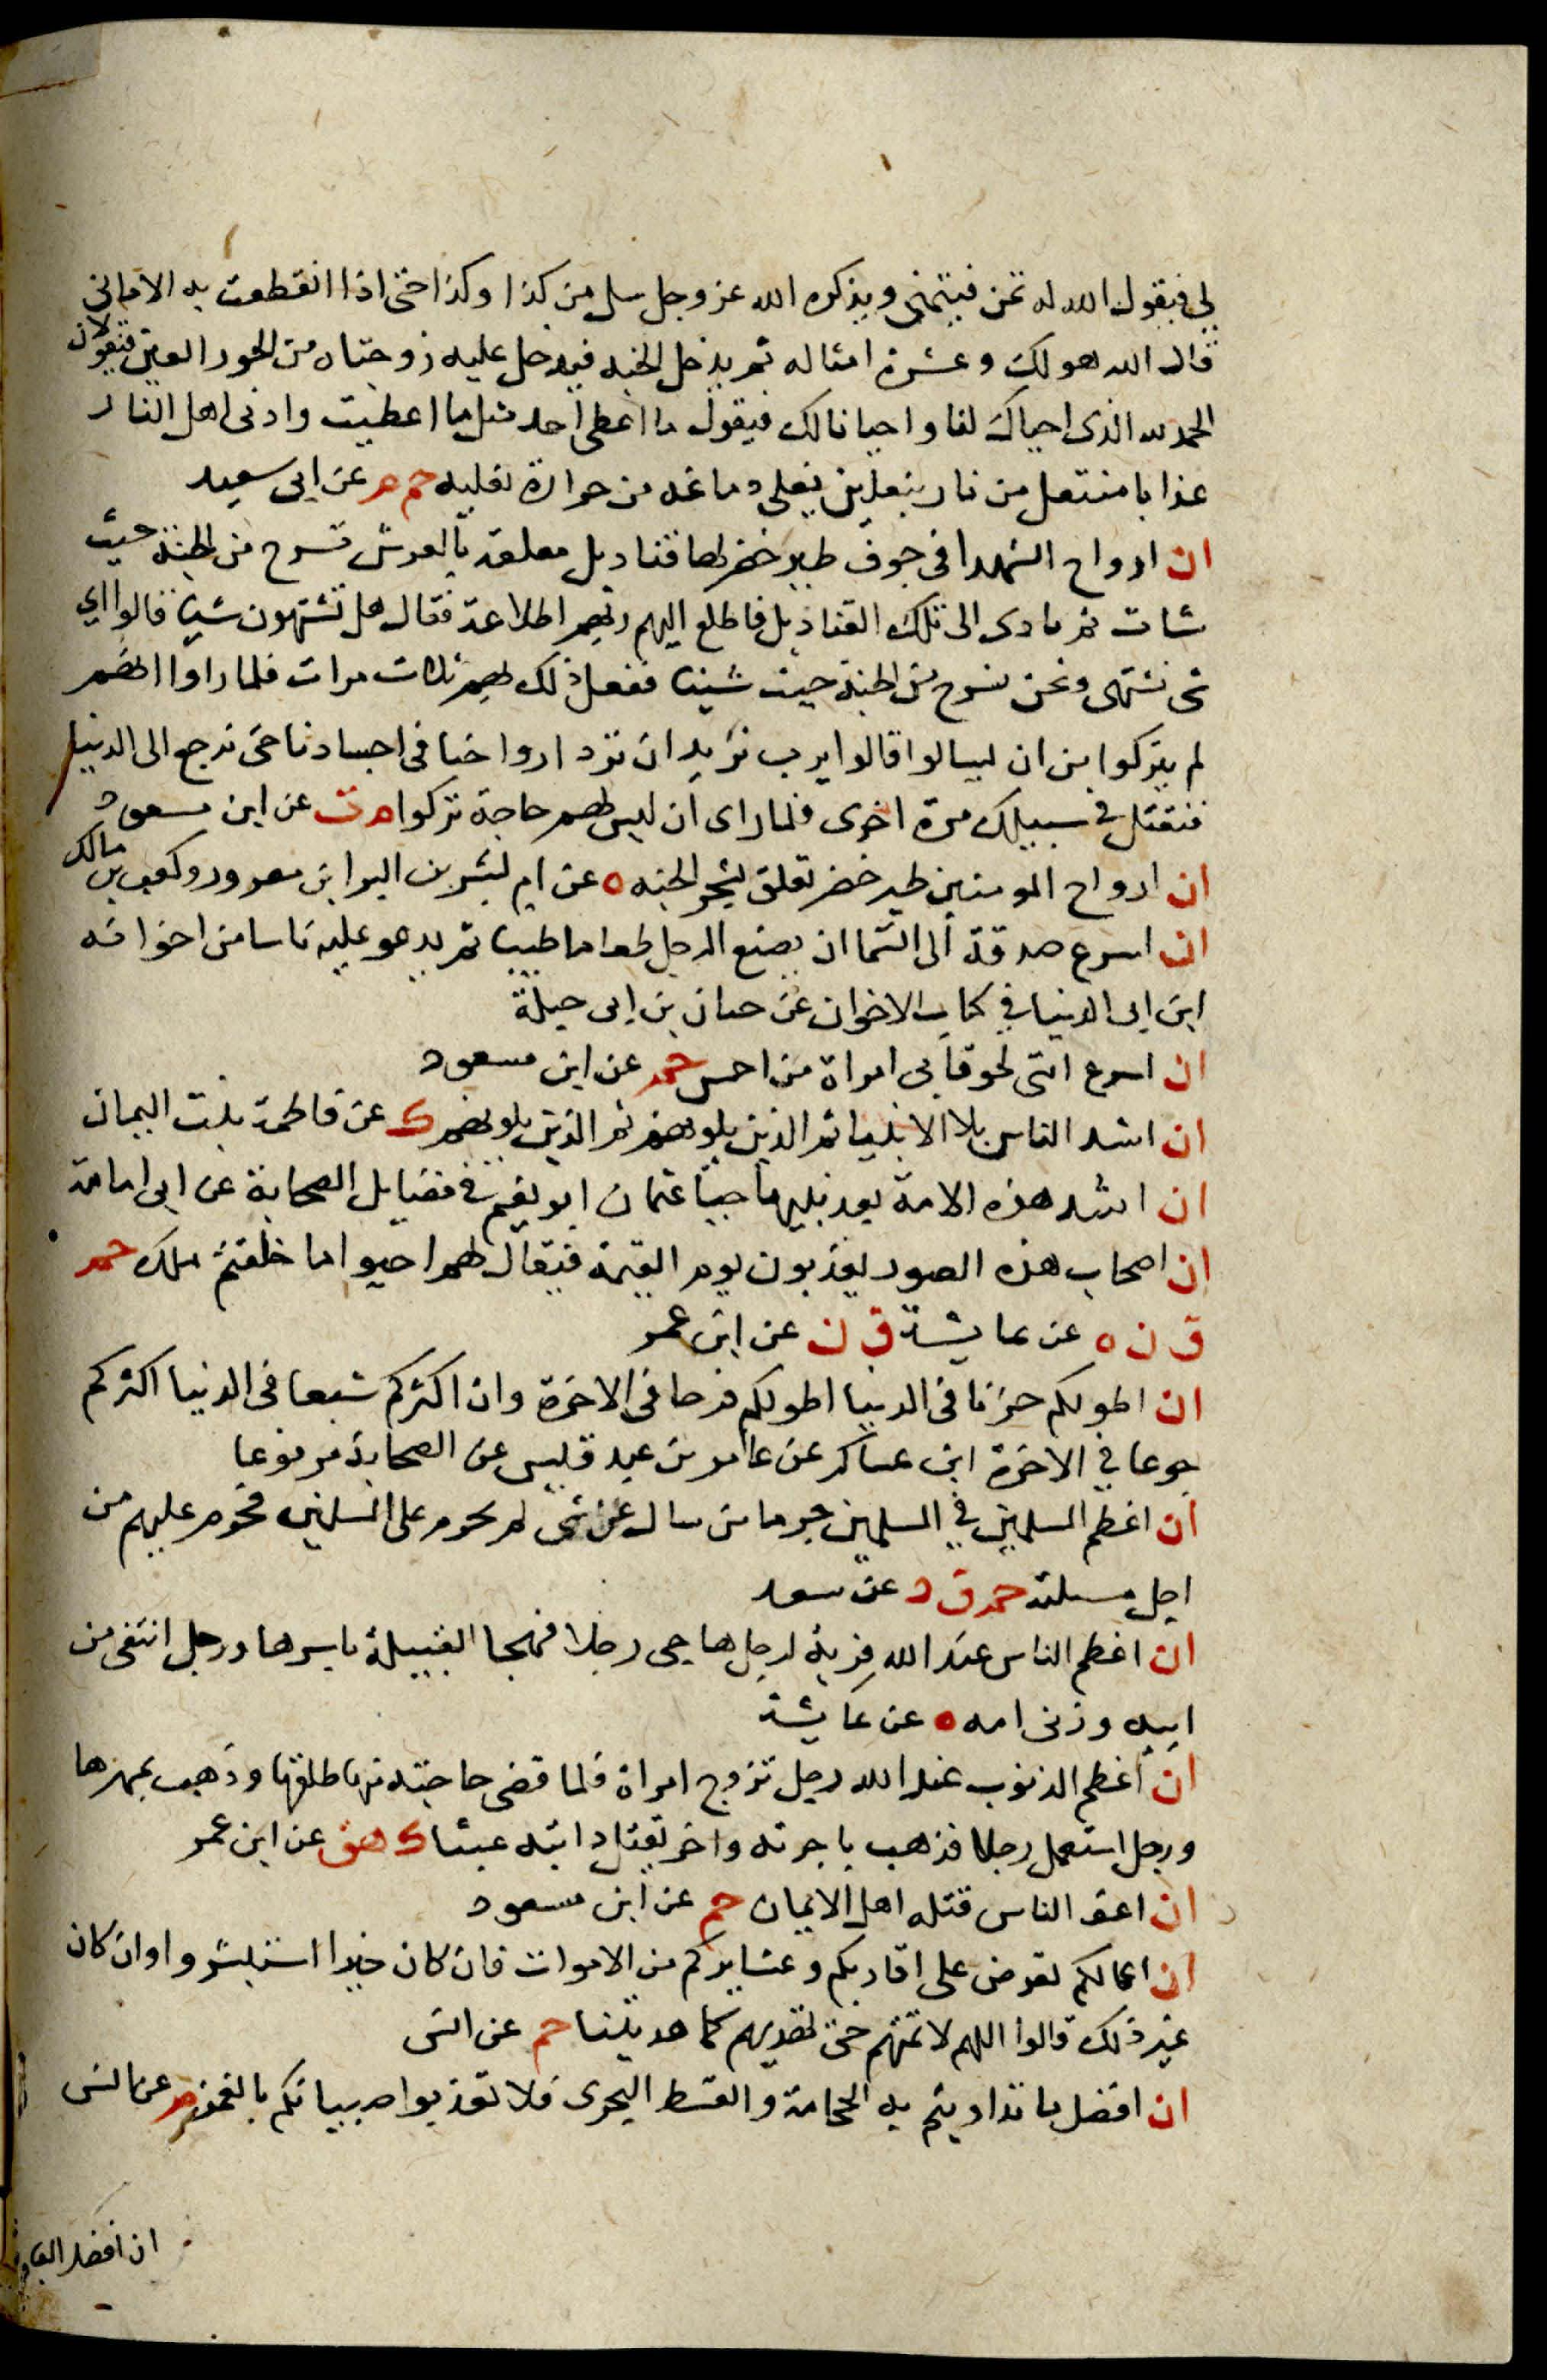 لي فيقول الله له تمن فيتمنى ويذكره الله عز وجل سل من كذا وكذا حتى اذا انقطعت به الاماني
قال الله هو لك وعشرة امثاله ثم يدخل الجنه فيدخل عليه زوجتاه من الحور العين فتقولان
الحمد لله الذى احياك لنا واحيانا لك فيقول ما اعطى احد مثل ما اعطيت وادنى اهل النار
عذابا منتعل من نار بنعلين يغلى دماغه من حرارة نعليه حم م عن ابى سعيد
ان ارواح الشهدا فى جوف طير خضر لها قناديل معلقه بالعرش تسرح من الجنة حيث
شات ثم تاوى الى تلك القناديل فاطلع اليهم ربهم اطلاعة فقال هل تشتهون شيا قالوا اي
شى نشتهى ونحن نسرح من الجنة حيث شينا ففعل ذلك بهم ثلاث مرات فلما راوا انهم
لم يتركوا من ان يسالوا قالوا يرب نريد ان ترد ارواحنا فى اجسادنا حتى نرجع الى الدنيا
فنقتل في سبيلك مرة اخرى فلما راى ان ليس لهم حاجة تركوا م ت عن ابن مسعود
ان ارواح المومنين طير خضر تعلق بشجر الجنه ه عن ام بشر بن البرا بن معرور وكعب بن مالك
ان اسرع صدقة الى السما ان يصنع الرجل طعاما طيبا ثم يدعو عليه ناسا من اخوانه
ابن ابى الدنيا في كتاب الاخوان عن حبان بن ابى جبلة
ان اسرع امتى لحوقا بى امراة من احمس حم عن ابن مسعود
ان اشد الناس بلا الانبيا ثم الذين يلونهم ثم الذين يلونهم ك عن فاطمة بنت اليمان
ان اشد هذه الامة بعد نبيها حيا عثمان ابو نعيم في فضايل الصحابة عن ابى امامة
ان اصحاب هذه الصور يعذبون يوم القيمة فيقال لهم احيوا ما خلقتم ملك حم
ق ن ه عن عايشة ق ن عن ابن عمر
ان اطولكم حزنا فى الدنيا اطولكم فرحا فى الاخرة وان اكثركم شبعا فى الدنيا اكثركم
جوعا في الاخرة ابن عساكر عن عامر بن عبد قيس عن الصحابة مرفوعا
ان اعظم المسلمين في المسلمين جرما من سال عن شى لم يحرم على المسلمين فحرم عليهم من
اجل مسلته حم ق د عن سعد
ان اعظم الناس عند الله فرية لرجل هاجى رجلا فهجا القبيلة باسرها ورجل انتفى من
ابيه وزنى امه ه عن عايشة
ان اعظم الذنوب عند الله رجل تزوج امراة فلما قضى حاجته منها طلقها وذهب بمهرها
ورجل استعمل رجلا فذهب باجرته واخر يقتل دابته عبثا ك هق عن ابن عمر
ان اعف الناس قتله اهل الايمان حم عن ابن مسعود
ان اعمالكم تعرض على اقاربكم وعشايركم من الاموات فان كان خيرا استبشروا وان كان
غير ذلك قالوا اللهم لا تمتهم حتى تهديهم كما هديتنا حم عن انس
ان افضل ما تداويتم به الحجامة والقسط البحرى فلا تعذبوا صبيانكم بالغمز م عن انس
ان افضل